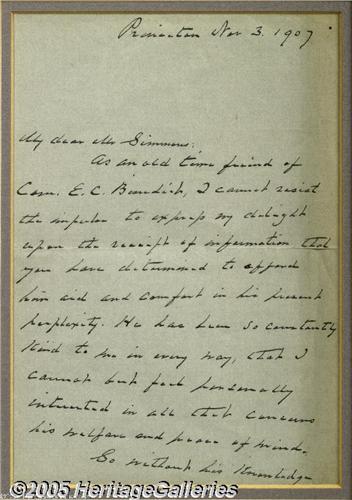 Princeton Nov 3. 1907
My dear Mr Simmons:
As an old time friend of
Com. E. C. Benedict, I cannot resist
the impulse to express my delight
upon the receipt of information that
you have determined to afford
him aid and comfort in his present
perplexity. He has been so constantly
kind to me in every way, that I
cannot but feel personally
interested in all that concerns
his welfare and peace of mind.
So without his knowledge
©2005 HeritageGalleries